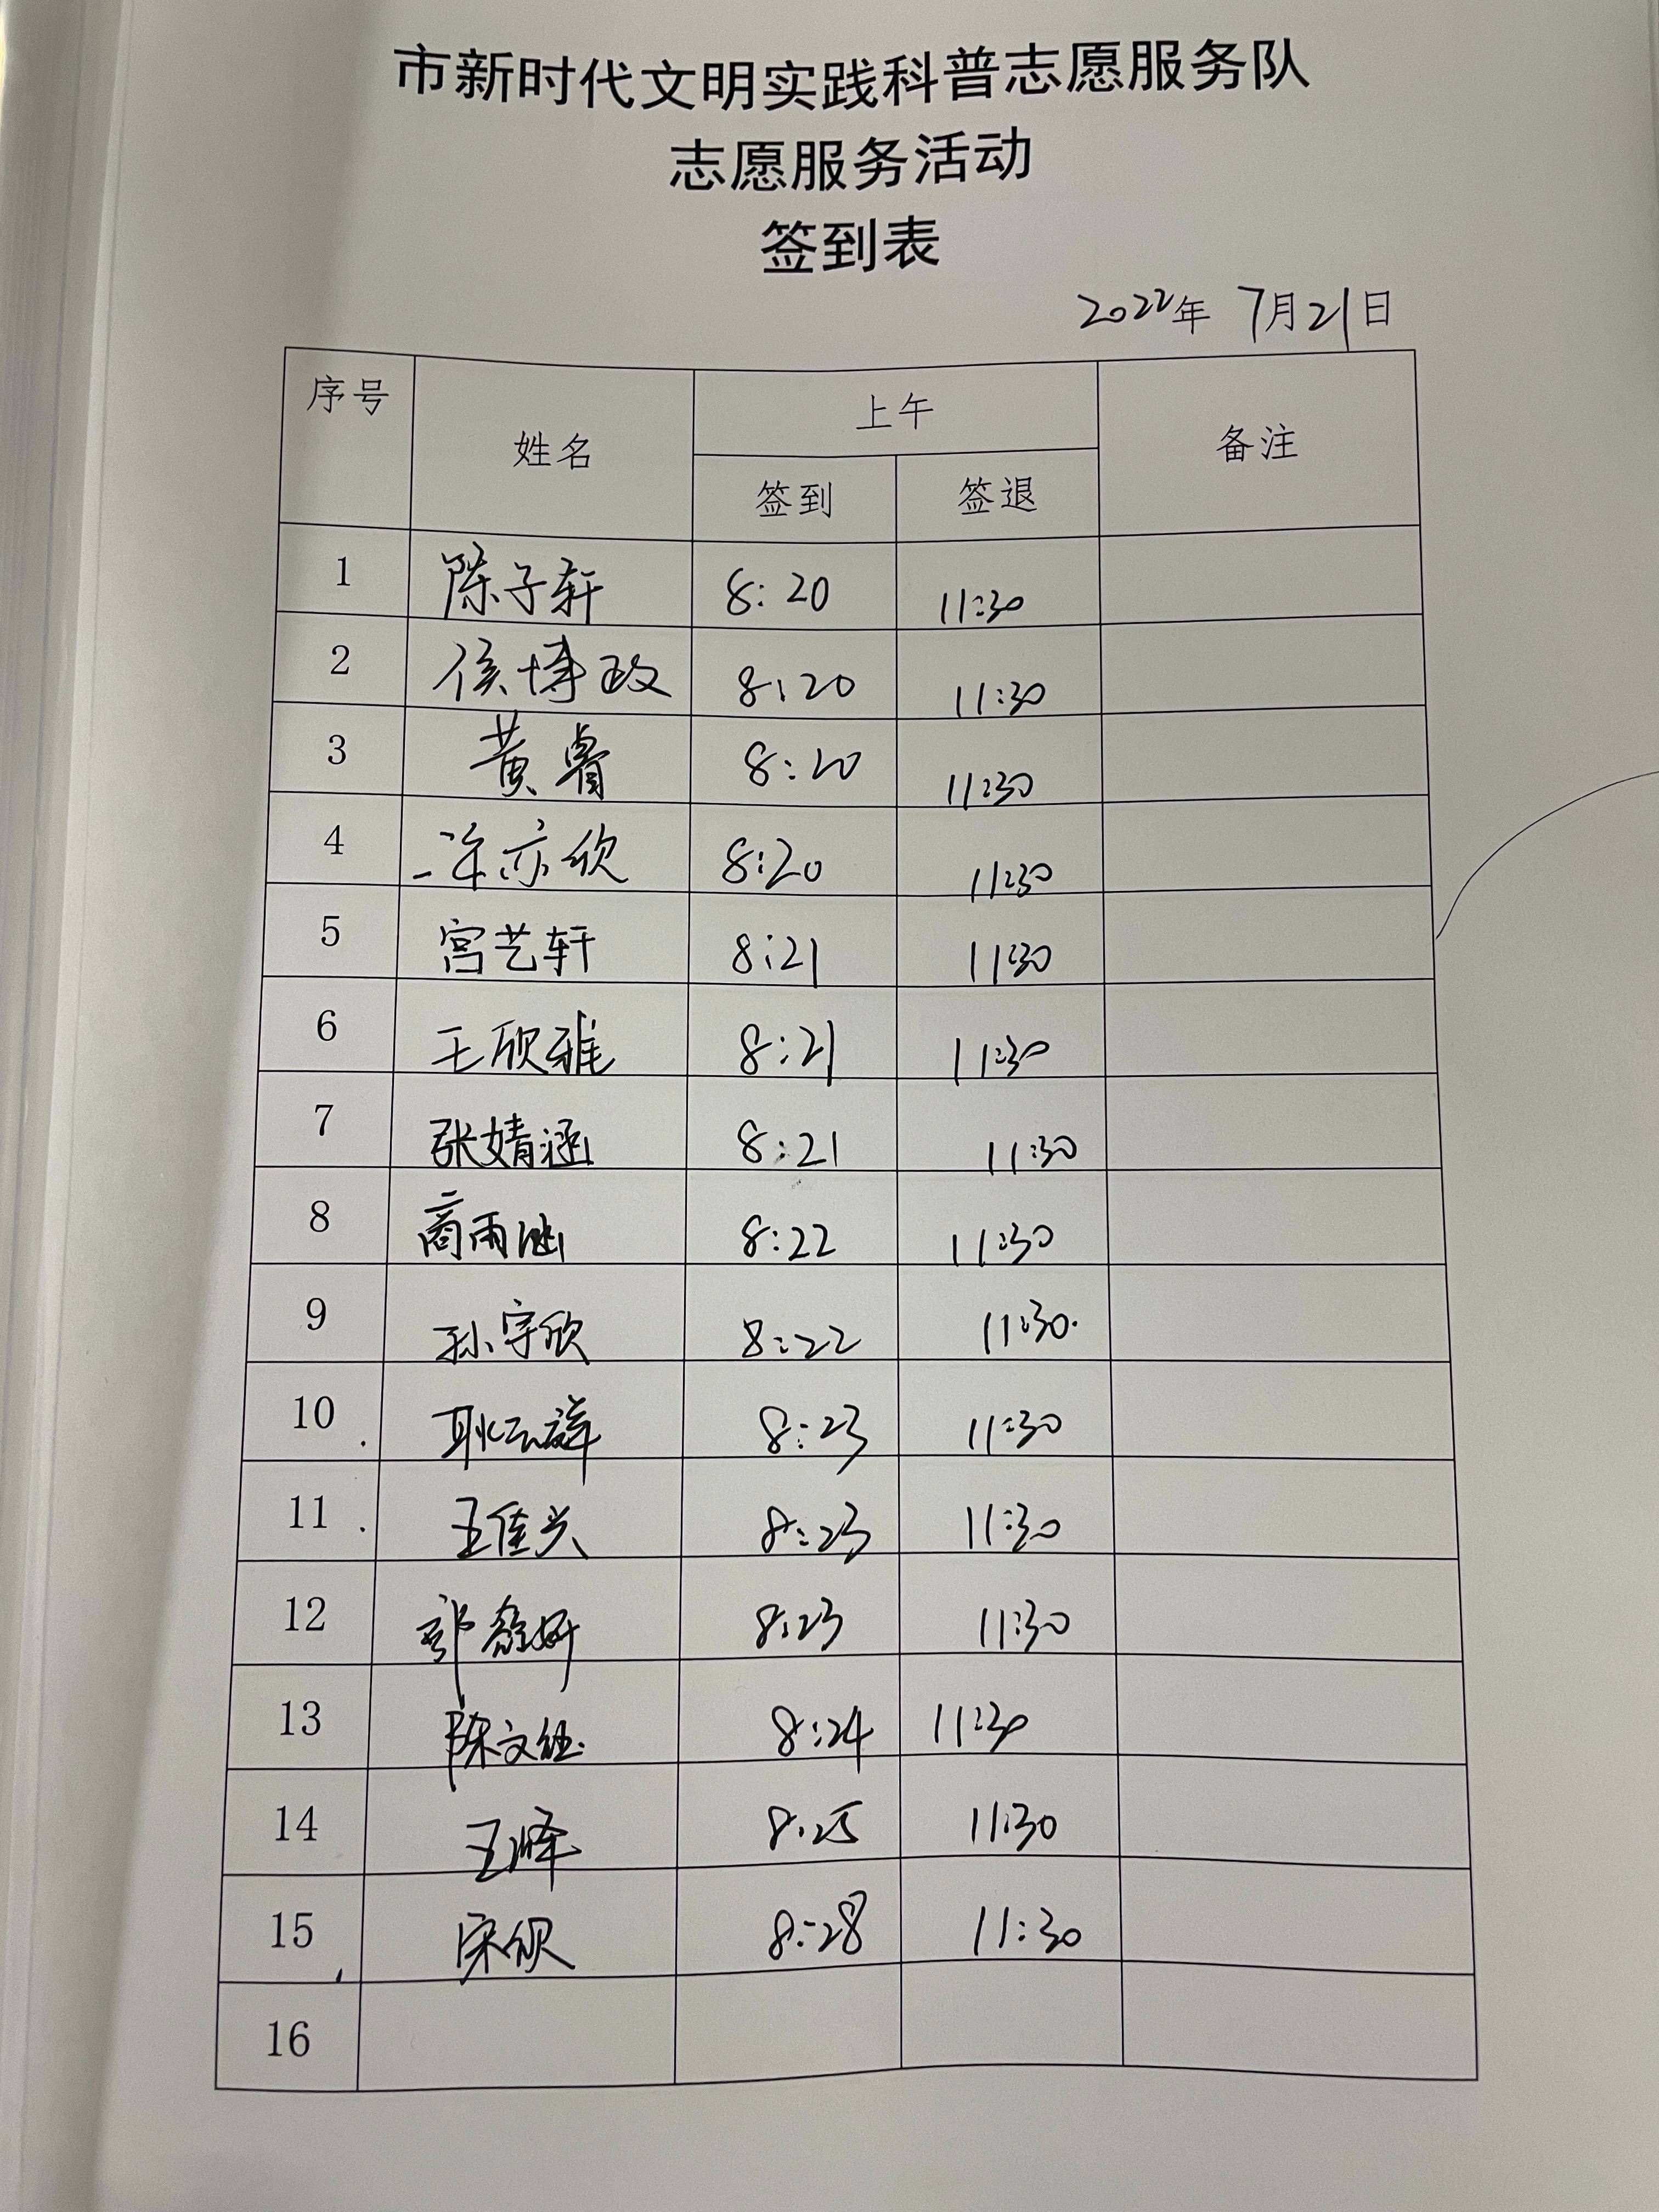 市新时代文明实践科普志愿服务队
志愿服务活动
签到表
2022年 7月21日
序号 姓名 上午 备注
签到 签退
1 陈子轩 8:20 11:30
2 侯博政 8:20 11:30
3 黄睿 8:20 11:30
4 亦欣 8:20 11:30
5 宫艺轩 8:21 11:30
6 王欣雅 8:21 11:30
7 张婧涵 8:21 11:30
8 商雨涵 8:22 11:30
9 孙宇欣 8:22 11:30
10 耿云祥 8:23 11:30
11 王佳兴 8:23 11:30
12 郭馨妍 8:23 11:30
13 陈文钰 8:24 11:30
14 王泽 8:25 11:30
15 宋 8:28 11:30
16